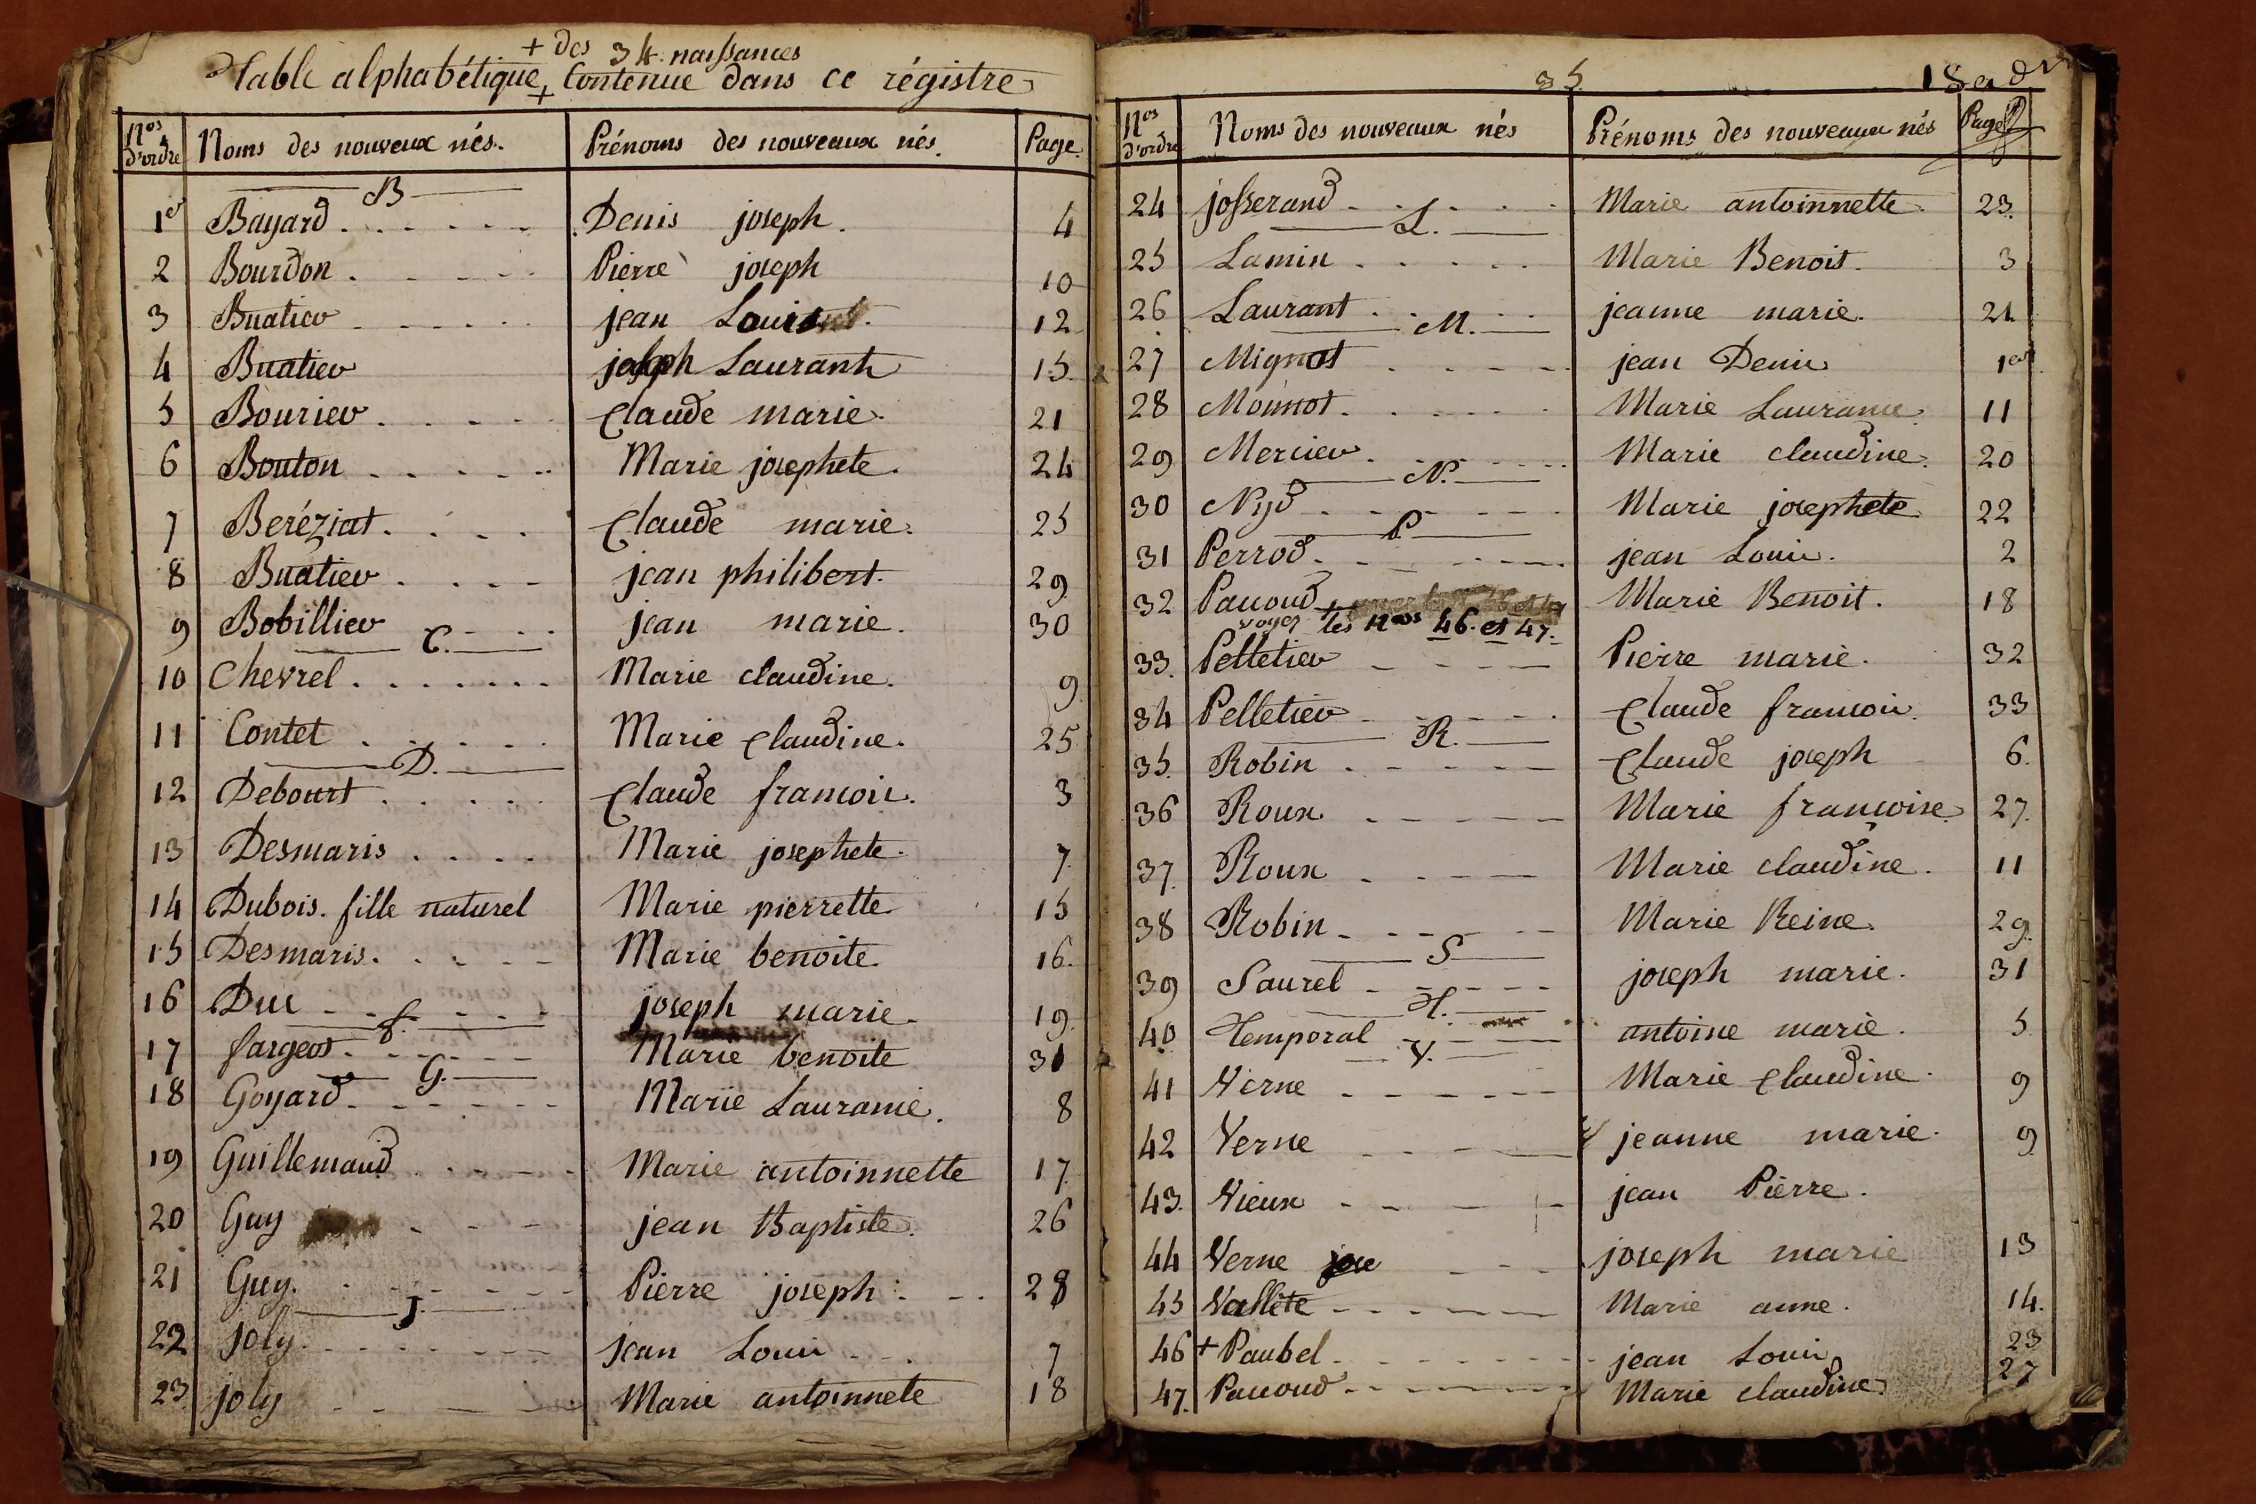 + des 34. naissances
Table alphabétique + Contenue dans ce régistre
Nos d'ordre Noms des nouveux nés. Prénoms des nouveaux nés. Page.
B
1er Bayard. Denis joseph. 4
2 Bourdon. Pierre joseph 10
3 Buatier jean Louis 12
4 Buatier joseph Laurant 15.
5 Bourier. Claude marie. 21
6 Bouton Marie josephete. 24
7 Beréziat. Claude marie. 25
8 Buatier jean philibert. 29
9 Bobillier jean marie. 30
C.
10 Chevrel. Marie claudine. 9.
11 Contet. Marie Claudine. 25
D.
12 Debourt Claude francois. 3
13 Desmaris Marie josephete. 7.
14 Dubois. fille naturel Marie pierrette. 15
15 Desmaris. Marie benoite. 16.
16 Duc joseph marie. 19.
f.
17 fargeot. Marie benoite 31
G.
18 Goyard Marie Lauranie. 8
19 Guillemaud Marie antoinnette 17.
20 Guy jean Baptiste. 26
21 Guy. Pierre joseph. 28
J.
22 joly. jean Louis 7
23. joly Marie antoinnete 18
35.
Nos d'ordre Noms des nouveaux nés Prénoms des nouveaux nés Page
24 josserand Marie antoinnette 23.
L.
25 Lamin Marie Benoit. 3
26 Laurant jeanne marie. 21
M.
27 Mignot jean Denis 1er
28 Monnot. Marie Lauranie. 11
29 Mercier. Marie claudine. 20
N.
30 Nyd Marie josephete 22
P.
31 Perrod jean Louis. 2
32 Pauoud Marie Benoit. 18
voyez les nos 46. et 47.
33. Pelletier Pierre marie. 32
34 Pelletier Claude francois. 33
R.
35. Robin Claude joseph 6.
36 Roux Marie francoise 27.
37. Roux Marie claudine. 11
38 Robin Marie Reine. 29.
S
39 Saurel joseph marie. 31
T.
40 Temporal antoine marie. 5
V.
41 Verne Marie Claudine. 9
42 Verne jeanne marie. 9
43. Vieux jean Pierre.
44 Verne joseph marie 13
45 Vallete Marie anne. 14.
46 + Paubel. jean Louis 23
47. Pauoud Marie claudine 27